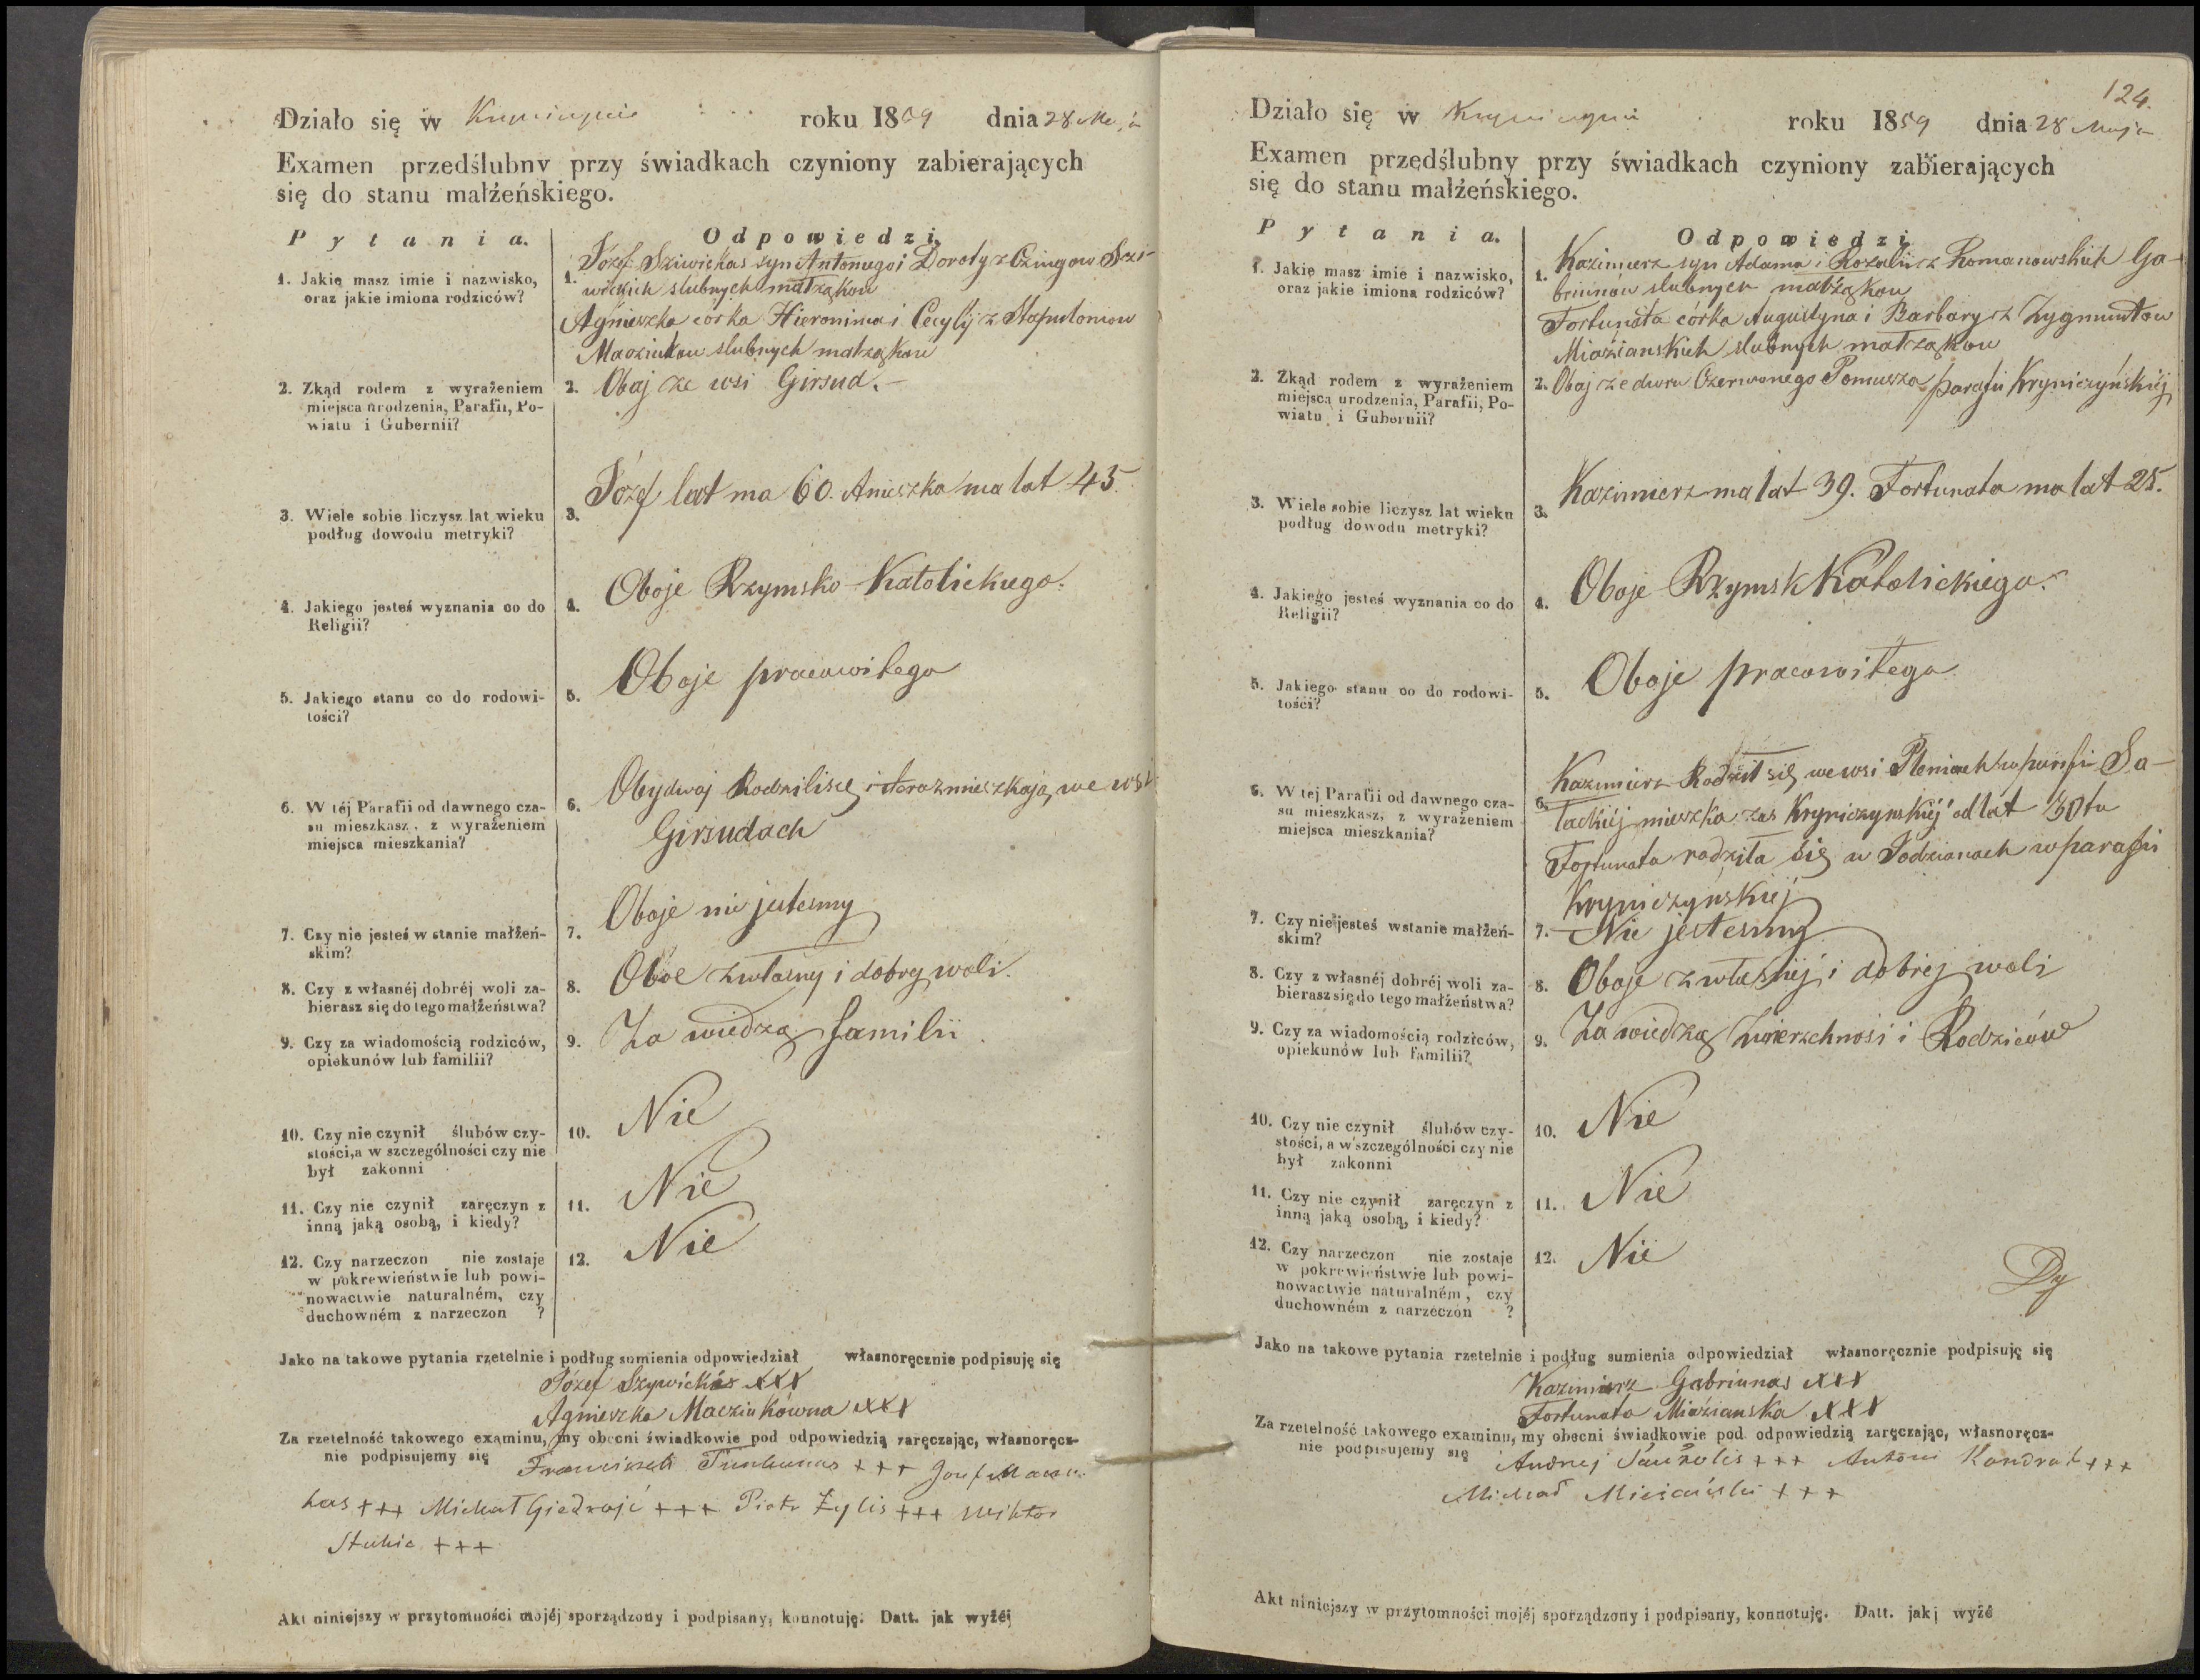 Działo się w Kryniczynie roku 1859 dnia 28 Maja
Examen przedślubny przy świadkach czyniony zabierających
się do stanu małżeńskiego.
Pytania.
Odpowiedzi.
1. Jakie masz imie i nazwisko,
oraz jakie imiona rodziców?
1. Józef Sziwickas syn Antoniego i Doroty z Czingow Szi-
wickich slubnych małżąkow
Agnieszka córka Hieronima i Cecylij z Stapuloniow
Maoziukow slubnych małrząkow
2. Zkąd rodem z wyrażeniem
miejsca urodzenia, Parafii, Po-
wiatu i Gubernii?
2. Obaj ze wsi Girsud.-
3. Wiele sobie liczysz lat wieku
podług dowodu metryki?
3. Józef lat ma 60. Anieszka ma lat 45.
4. Jakiego jesteś wyznania co do
Religii?
4. Oboje Rzymsko-Katolickiego.
5. Jakiego stanu co do rodowi-
tości?
5. Oboje pracowitego
6. W téj Parafii od dawnego cza-
su mieszkasz, z wyrażeniem
miejsca mieszkania?
6. Obydwaj Rodzilisię i teraz mieszkają we wsi
Girsudach
7. Czy nie jesteś w stanie małżeń-
skim?
7. Oboje nie jestesmy
8. Czy z własnéj dobréj woli za-
bierasz się do tego małżeństwa?
8. Oboe z własny i dobry woli.
9. Czy za wiadomością rodziców,
opiekunów lub familii?
9. Za wiedzą familii.
10. Czy nie czynił ślubów czy-
stości, a w szczególności czy nie
był zakonni
10. Nie
11. Czy nie czynił zaręczyn z
inną jaką osobą, i kiedy?
11. Nie
12. Czy narzeczon nie zostaje
w pokrewieństwie lub powi-
nowactwie naturalném, czy
duchowném z narzeczon ?
12. Nie
Jako na takowe pytania rzetelnie i podług sumienia odpowiedział własnoręcznie podpisuję się
Józef Szywickas XXX
Agnieszka Macziukówna XXX
Za rzetelność takowego examinu, my obecni świadkowie pod odpowiedzią zaręczając, własnoręcz-
nie podpisujemy się Franciszek +++ Józef
kas +++ Michał Giedrojć +++ Piotr Żylis +++ Wiktor
+++
Akt niniejszy w przytomności mojéj sporządzony i podpisany, konnotuję. Datt. jak wyżéj
124.
Działo się w Kryniczynie roku 1859 dnia 28 Maja
Examen przedślubny przy świadkach czyniony zabierających
się do stanu małżeńskiego.
Pytania.
Odpowiedzi
1. Jakie masz imie i nazwisko,
oraz jakie imiona rodziców?
1. Kazimierz syn Adama i Rozalii z Romanowskich Ga-
briunow slubnych małżąkow
Fortunata córka Augustyna i Barbary z Zygmuntow
Miaźianskich slubnych małrząkow
2. Zkąd rodem z wyrażeniem
miejsca urodzenia, Parafii, Po-
wiatu i Gubernii?
2. Obaj ze dworu Czerwonego Pomusza parafii Kryniczyńskiéj
3. Wiele sobie liczysz lat wieku
podług dowodu metryki?
3. Kazimierz ma lat 39. Fortunata ma lat 25.
4. Jakiego jesteś wyznania co do
Religii?
4. Oboje Rzymsk Katolickiego.-
5. Jakiego stanu co do rodowi-
tości?
5. Oboje pracowitego
6. W téj Parafii od dawnego cza-
su mieszkasz, z wyrażeniem
miejsca mieszkania?
6. Kazimierz Rodził się we wsi Pleniach w parafii Sa-
łackiéj mieszka zas Kryniczynskiéj od lat 30tu
Fortunata rodziła się w Jodzianach w parafii
Kryniczyńskiéj
7. Czy nie jesteś wstanie małżeń-
skim?
7. Nie jestesmy
8. Czy z własnéj dobréj woli za-
bierasz się do tego małżeństwa?
8. Oboje z własnéj i dobrej woli
9. Czy za wiadomością rodziców,
opiekunów lub familii?
9. Za wiedzą zwierzchnosi i Rodziców
10. Czy nie czynił ślubów czy-
stości, a w szczególności czy nie
był zakonni
10. Nie
11. Czy nie czynił zaręczyn z
inną jaką osobą, i kiedy?
11. Nie
12. Czy narzeczon nie zostaje
w pokrewieństwie lub powi-
nowactwie naturalném, czy
duchowném z narzeczon ?
12. Nie
Dy
Jako na takowe pytania rzetelnie i podług sumienia odpowiedział własnoręcznie podpisuję się
Kazimierz Gabriunas XXX
Fortunata Miaźianska XXX
Za rzetelność takowego examinu, my obecni świadkowie pod odpowiedzią zaręczając, własnoręcz-
nie podpisujemy się Andrzej +++ Antoni Kondrat +++
Michał +++
Akt niniejszy w przytomności mojéj sporządzony i podpisany, konnotuję. Datt. jak j wyżé